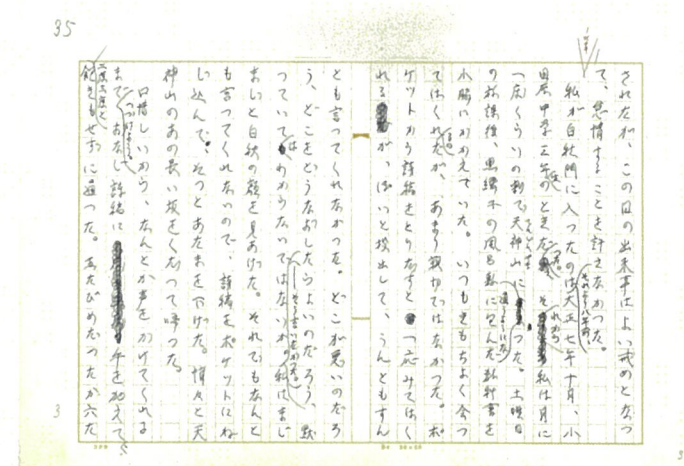 35
されたが、この日の出来事はよい戒めとなつ
て、怠惰することを許さなかつた。
私が白秋門に入つたのは大正七年十月、小
田原中学三年のときだ
つた。それから私は月に
一度くらいの割で天神山に通つた。土曜日
の放課後、黒繻子の風呂敷に包んだ教科書を
小脇にかかえていた。いつもきもちよく会つ
てはくれたが、あまり親切ではなかつた。ポ
ケットから詩稿をとりだすと一応みてはく
れるが、ぽいと投出して、うんともすん
とも言つてくれなかつた。どこが悪いのだろ
う、どこをどうなおしたらよいのだろう、黙
つていてはわからないではないか。私はまじ
まじと白秋の顔を見あげた。それでもなんと
も言つてくれないので、詩稿をポケットにね
じ込んで、そつとあたまを下げた。悄々と天
神山のあの長い坂をくだつて帰つた。
口惜しいから、なんとか声をかけてくれる
まで、おなじ詩稿に手を加えて、
二度三度と
飽きもせずに通つた。五たびめだつたか六た
3